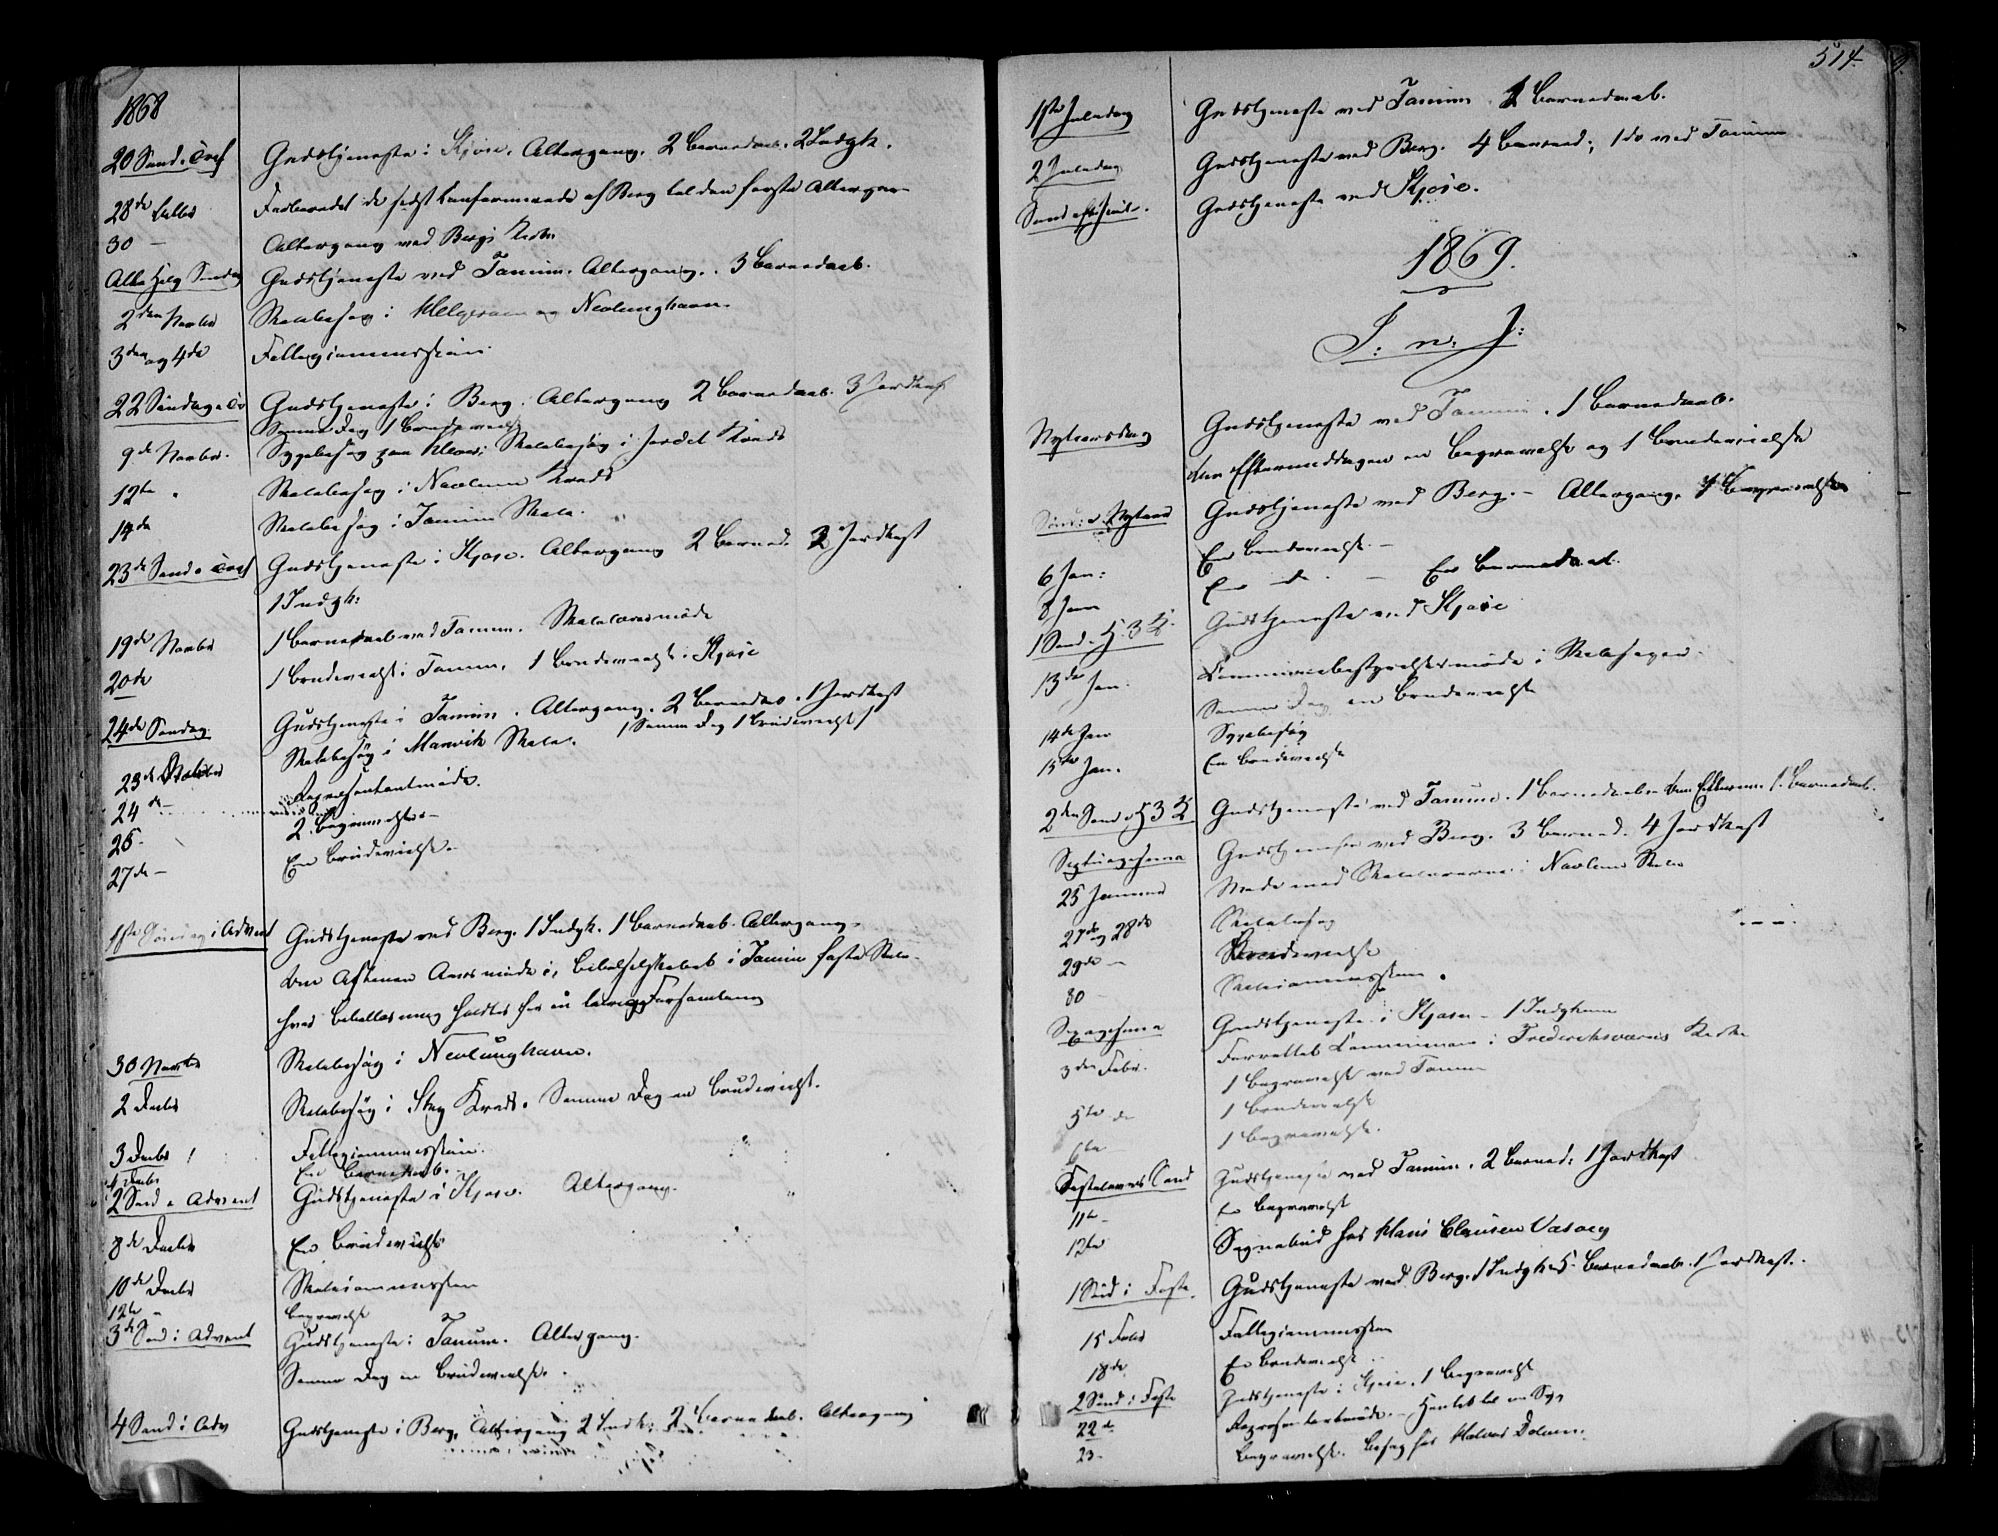 1868
20 Sønd. e Tref Gudstjeneste i Kjose. Altergang. 2 Barnedaab. 2 Indgk.
28de Octbr Forberedt de sidst Confirmerede af Berg til den første Altergang
30 — Altergang ved Bergs Kirke
Alle Helg Søndag Gudstjeneste ved Tanum. Altergang. 3 Barnedaab.
2den Novbr Skolebesøg i Helgeraae og Nevlunghavn.
3den og 4de Fattigcommission
22 Søndag e Tr Gudstjeneste i Berg. Altergang 2 Barnedaab. 3 Jordkast
Samme Dag 1 Brudevielse
9de Novbr. Sygebesøg paa Skolebesøg i Kreds
12te " Skolebesøg i Navlum Kreds
14de Skolebesøg i Tanum Skole.
23de Sønd e Tref Gudstjeneste i Kjose. Altergang 2 Barned. 2 Jordkast
1 Indgk:
19de Novbr 1 Barnedaab ved Tanum. Skolelærermøde
20de 1 Brudevielse i Tanum, 1 Brudevielse i Kjose
24de Søndag Gudstjeneste i Tanum. Altergang. 2 Barnedaab. 1 Jordkast
Skolebesøg i Manvik Skole. / Samme Dag 1 Brudevielse /
23de Novbr
24de — Repræsentantmøde.
25 2 Begravelser. —
27de — En Brudevielse. —
1ste Søndag i Advent Gudstjeneste ved Berg. 1 Indgk. 1 Barnedaab. Altergang.
Om Aftenen Aarsmøde i Bibelselskabet i Tanum faste Skole
hvor Bibellæsning holdtes for en Forsamling
30 Novbr Skolebesøg i Nevlunghavn.
2 Decbr Skolebesøg i Kreds. Samme Dag en Brudevielse.
3 Decbr Fattigcommission.
4 Decbr En Barnedaab.
2 Sønd e Advent Gudstjeneste i Kjose. Altergang.
8de Decbr En Brudevielse
10de Decbr Skolecommission
12te " Begravelse
3de Sønd i Advent Gudstjeneste i Tanum. Altergang.
Samme Dag en Brudevielse.
4 Sønd i Adv Gudstjeneste i Berg, Altergang 2 Indk: 2 Barnedaab. Altergang
514.
1ste Juledag Gudstjeneste ved Tanum. 2 Barnedaab.
2 Juledag Gudstjeneste ved Berg. 4 Barned; 1 do ved Tanum
Sønd efter Juul. Gudstjeneste ved Kjose.
1869.
I. n. J:
Nytaarsdag Gudstjeneste ved Tanum. 1 Barnedaab.
Om Eftermiddagen en Begravelse og 1 Brudevielse
Sønd: e. Nytaar Gudstjeneste ved Berg. — Altergang. 1 Begravelse
6 Jan: En Brudevielse. —
8 Jan En do. — En Barnedaab.
1 Sønd. e. H. 3 K. Gudstjeneste ved Kjose
13de Jan. Communebestyrelsesmøde i Skolesager.
Samme Dag en Brudevielse
14de Jan Sygebesøg
15de Jan. En Brudevielse
2den Sønd e H 3 K Gudstjeneste ved Tanum. 1 Barnedaab. Om Efterm. 1 Barnedaab.
Septuagesima Gudstjeneste ved Berg. 3 Barned. 4 Jordkast
25 Januar Møde med Skolelærerne i Navlum Skole
27de og 28de Skolebesøg
29de — Brudevielse
30 — Skolecommission.
Sexagesima Gudstjeneste i Kjose — 1 Indgkone
3den Febr. Forrettet Communion i Frederiksværns Kirke
1 Begravelse ved Tanum
5te do 1 Brudevielse
6te 1 Begravelse.
Fastelavns Sønd Gudstjeneste ved Tanum. 2 Barned: 1 Jordkast
11te — En Begravelse
12te Sognebud hos Hans Clausen Vasvey
1 Sønd i Faste. Gudstjeneste ved Berg. 1 Indgk 5 Barnedaab. 1 Jordkast.
15 Febr Fattigcommission
18de En Brudevielse
2 Sønd i Faste Gudstjeneste i Kjose. 1 Begravelse
22de Repræsentantmøde. — Hentet til en Syg
23 — Begravelse. Besøg hos Halvor Dolven.